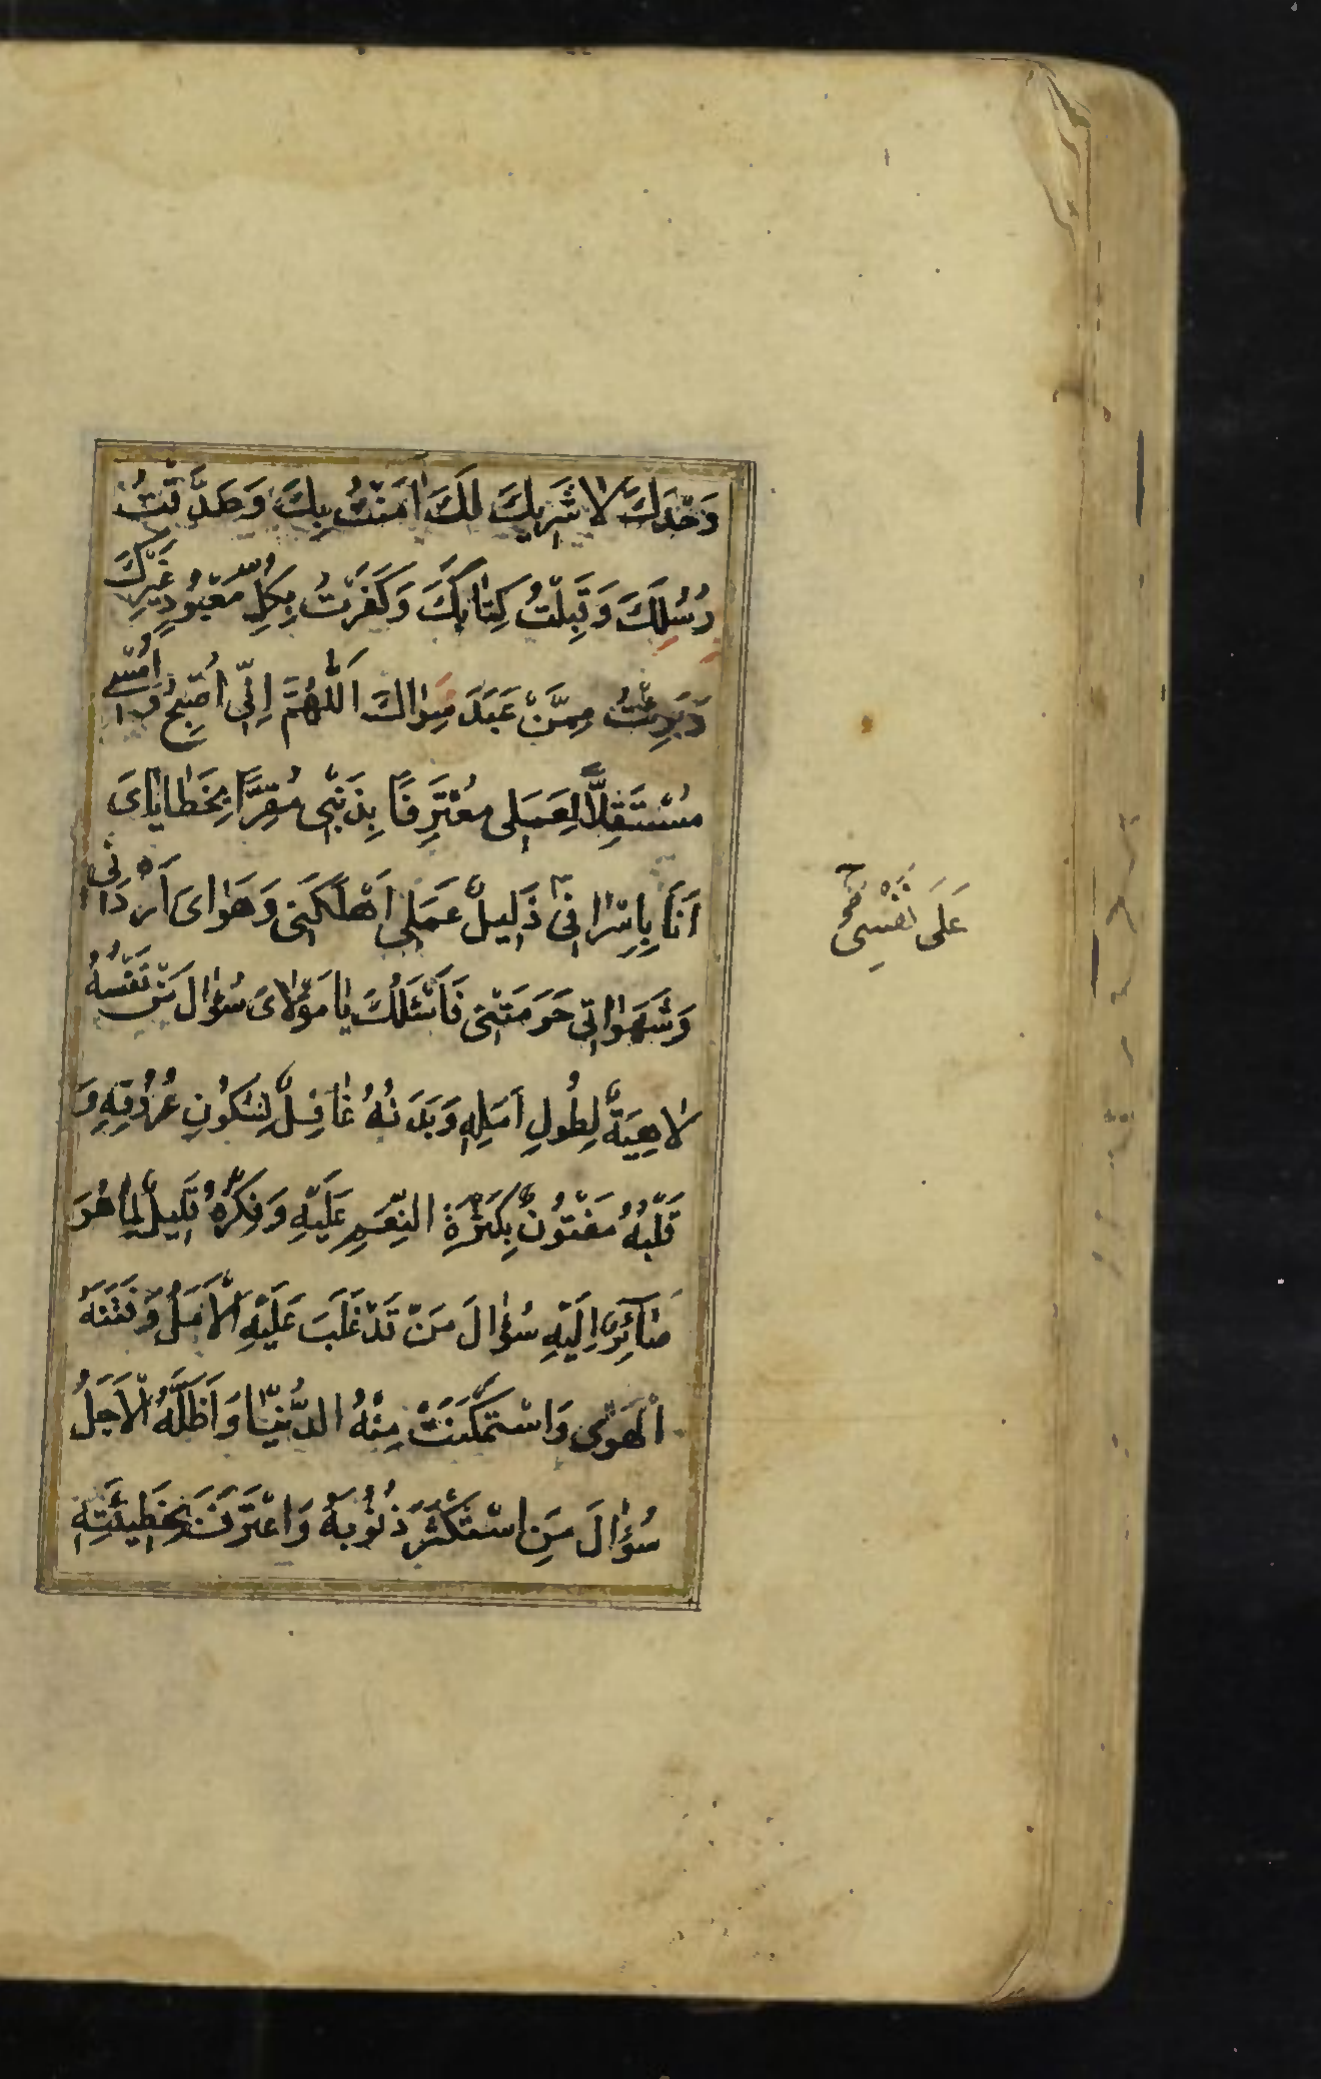 وَحْدَكَ لَا شَرِيكَ لَكَ اٰمَنْتُ بِكَ وَصَدَّقْتُ
رُسُلَكَ وَقَبِلْتُ كِتٰابَكَ وَكَفَرْتُ بِكُلِّ مَعْبُودٍ غَيْرِكَ
وَبَرِئْتُ مِمَّنْ عَبَدَ سِوٰاكَ اَللّٰهُمَّ اِنّي اُصْبِحُ وَاُمْسي
مُسْتَقِلًّا لِعَمَلي مُعْتَرِفًا بِذَنْبي مُقِرًّا بِخَطٰايٰاىَ
اَنَا بِاِسْرٰافي ذَليلٌ عَمَلي اَهْلَكَني وَهَوٰاىَ اَرْدَاني
عَلَى نَفْسِي
وَشَهَوٰاتي حَرَمَتْني فَاَسْئَلُكَ يٰا مَوْلاىَ سُؤٰالَ مَنْ نَفْسُهُ
لاٰهِيَةٌ لِطُولِ اَمَلِهِ وَبَدَنُهُ غٰافِلٌ لِسُكُونِ عُرُوقِهِ وَ
قَلْبُهُ مَفْتُونٌ بِكَثْرَةِ النِّعَمِ عَلَيْهِ وَفِكْرُهُ قَليلٌ لِمٰا هُوَ
صَآئِرٌ اِلَيْهِ سُؤٰالَ مَنْ قَدْ غَلَبَ عَلَيْهِ الْاَمَلُ وَفَتَنَهُ
الْهَوٰى وَاسْتَمْكَنَتْ مِنْهُ الدُّنْيٰا وَاَظَلَّهُ الْاَجَلُ
سُؤٰالَ مَنِ اسْتَكْثَرَ ذُنُوبَهُ وَاعْتَرَفَ بِخَطيئَتِهِ